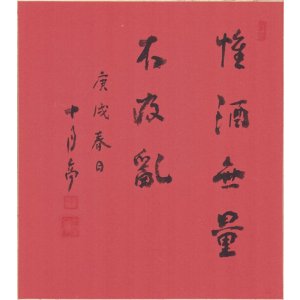 惟酒無量
不及亂
庚戌春日